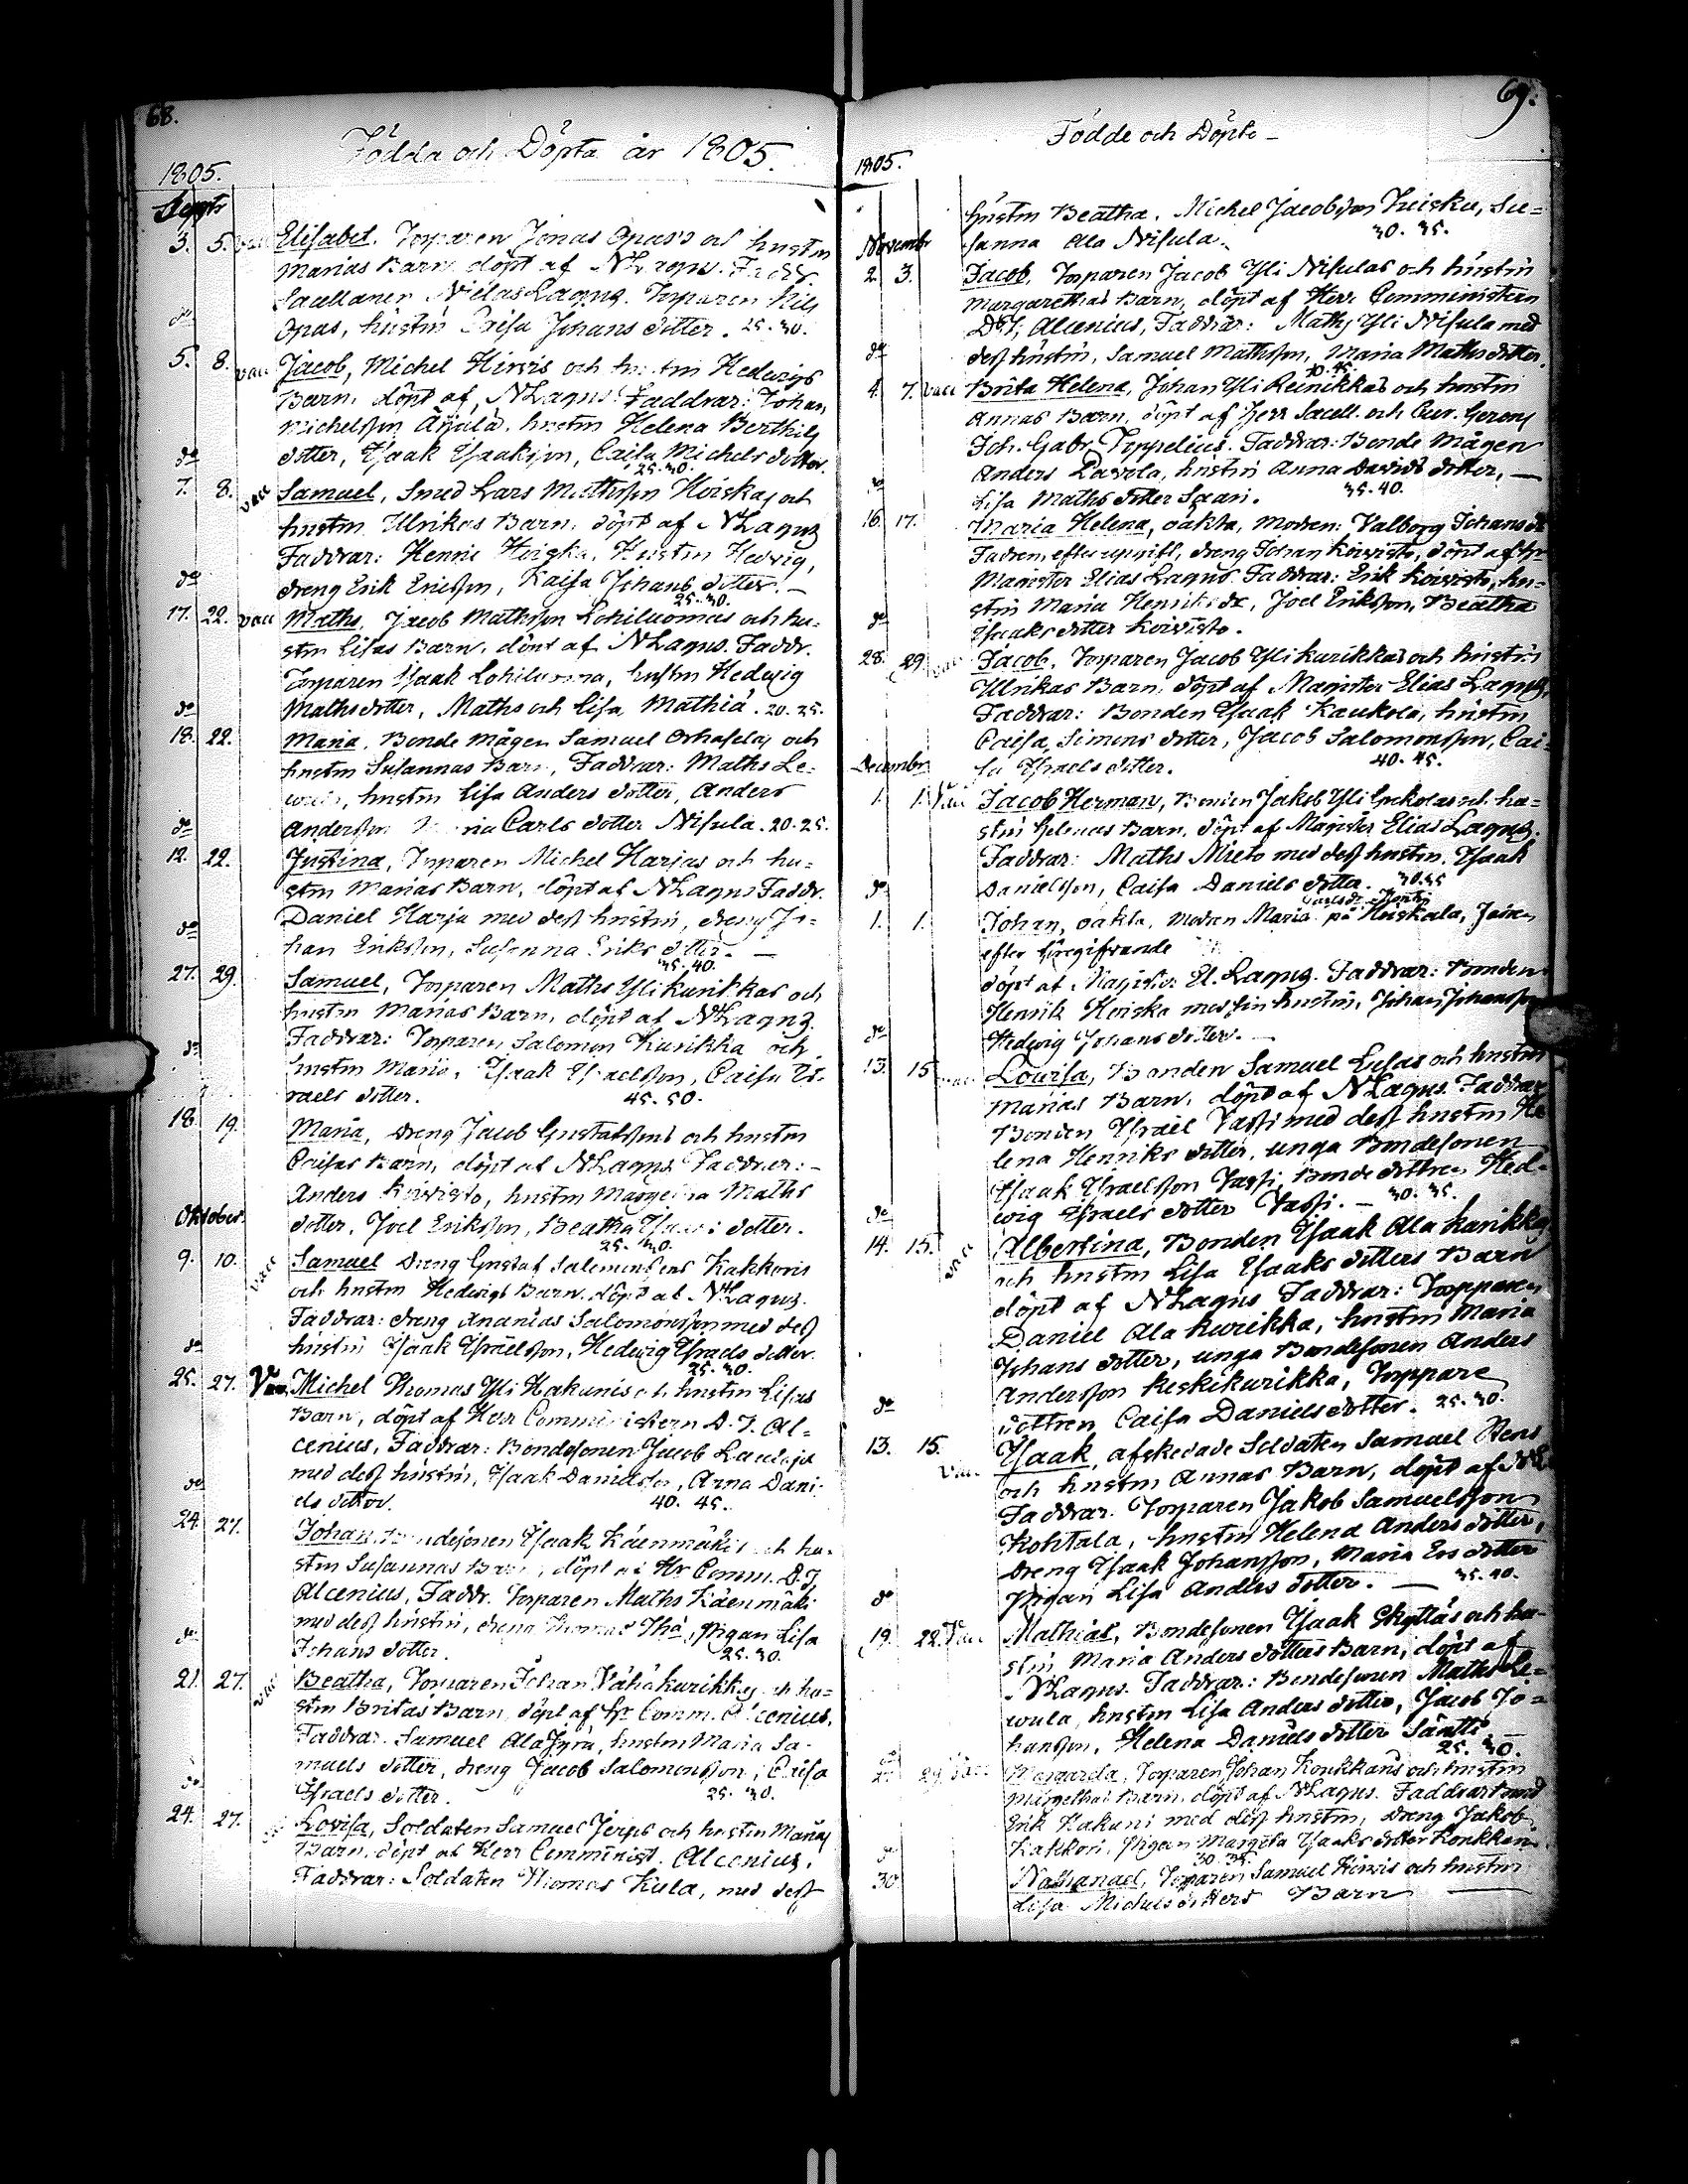 68.
Födda och Döpta år 1805.
1805.
Septr
3. 5. vacc Elisabet. Torparen Jonas Opas's och hustrun
Marias Barn döpt af NLagus. Faddr.
Sacellanen Niclas Lagus. Torparen Nils
do Opas, hustrun Caisa Johans dotter. 25-30.
5. 8. vacc Jacob, Michel Hirvis och hustrun Hedvigs
Barn, döpt af NLagus. Faddrar: Johan
Michelsson Äijälä, hustrun Helena Berthils
do dotter, Isaak Isaaksson, Caisa Michels dotter.
25-30.
7. 8. vacc Samuel, Smed Lars Mathsson Hoiskas och
hustrun Ulrikas Barn, döpt af NLagus
Faddrar: Henric Hoiska, Hustrun Hedvig,
do dreng Erik Ericsson, Kaisa Johans dotter. -
25-30.
17. 22. vacc Maths, Jacob Mathsson Lohiluomas och hu-
strun Lisas Barn, döpt af NLagus. Faddr.
Torparen Isaak Lohiluoma, hustrun Hedvig
do Maths dotter, Maths och Lisa Mathiä. 20-25.
18. 22. Maria, Bonde Mågen Samuel Orhaselas och
hustrun Susannas Barn, Faddrar: Maths Le-
, hustrun Lisa Anders dotter, Anders
do Andersson Carls dotter Nisula. 20-25.
12. 22. Justina, Torparen Michel Harjas och hu-
strun Marias Barn, döpt af NLagus Faddr.
Daniel Harju med dess hustrun, dreng Jo-
do han Eriksson, Susanna Eriks dotter. -
35-40.
27. 29. Samuel, Torparen Maths Yli Kurikkas och
hustrun Marias Barn, döpt af NLagus.
Faddrar: Torparen Salomon Kurikka och
do hustrun Maria, Isaak Israelsson, Caisa Is-
raels dotter. 45-50.
18. 19. Maria, dreng Jacob Gustafssons och hustrun
Caisas Barn, döpt af NLagus Faddrar: -
Anders Koivisto, hustrun Margetha Maths
Oktober. dotter, Joel Eriksson, Beatha Isaacs dotter.
25-30.
9. 10. vacc Samuel dreng Gustaf Salomonssons Kakkoris
och hustrun Hedvigs Barn. döpt af NLagus.
Faddrar: dreng Ananias Salomonsson med dess
do hustrun Isaak Israelsson, Hedvig Israels dotter.
25-30.
25. 27. Vacc. Michel Thomas Yli Hakunis och hustrun Lisas
Barn, döpt af Herr Comministern D. J. Al-
cenius, Faddrar: Bondesonen Jacob
med dess hustrun, Isaak Danielsson, Anna Dani-
do els dotter. 40-45.
24. 27. Johan, Bondesonen Isaak Käenmäkis och hu-
strun Susannas Barn, döpt af Hr Comm. D. J.
Alcenius, Faddr. Torparen Maths Käenmäki
med dess hustrun, dreng Thomas , Pigan Lisa
do Johans dotter. 25-30.
21. 27. vacc Beatha, Torparen Johan Vähäkurikkas och hu-
strun Britas Barn, döpt af Hr Comm. Alcenius,
Faddrar. Samuel Ala Jyrä, hustrun Maria Sa-
muels dotter, dreng Jacob Salomonsson, Caisa
do Israels dotter. 25-30.
24. 27. Lovisa, Soldaten Samuel Jerps och hustrun Marias
Barn, döpt af Herr Comminist. Alcenius.
Faddrar: Soldaten Thomas Kula, med dess
69.
Födde och Döpte -
1805.
hustrun Beatha. Michel Jacobsson Luisku, Su-
Novembr sanna Ala Nisula. 30-35.
2. 3. Jacob, Torparen Jacob Yli Nisulas och hustrun
Margarethas Barn, döpt af Herr Comministern
D: J; Alcenius, Faddrar: Maths Yli Nisula med
do dess hustrun, Samuel Mathsson, Maria Maths dotter.
40-45.
4. 7. vacc Brita Helena, Johan Yli Reinikkas och hustrun
Annas Barn, döpt af Herr Sacell. och Cur. Gerens
Joh. Gabr. Toppelius. Faddrar: Bonde Mågen
Anders Lavola, hustrun Anna Davids dotter, -
do Lisa Maths dotter Saari. 35-40.
16. 17. Maria Helena, oäkta, Modren: Valborg Johans dr
Fadren, efter uppgift, dreng Johan Koivisto, döpt af Hr
Magister Elias Lagus. Faddrar: Erik Koivisto, hu-
strun Maria Henriks dr, Joel Eriksson, Beatha
do Isaaks dotter Koivisto.
28. 29. vacc Jacob, Torparen Jacob Yli Kurikkas och hustrun
Ulrikas Barn, döpt af Magister Elias Lagus,
Faddrar: Bonden Isaak Kaukola, hustrun
Caisa Simons dotter, Jacob Salomonsson, Cai-
Decembr sa Israels dotter. 40-45.
1. 1. Vacc Jacob Herman, Bonden Jakob Yli och hu-
strun Helenas Barn, döpt af Magister Elias Lagus.
Faddrar: Maths Mieto med dess hustrun, Isaak
do Danielsson, Caisa Daniels dotter. 30-35
1. 1. Johan, oäkta, Modren Maria Carls dr på Hoiskala, Fadren
efter föregifvande
döpt af Magister El. Lagus. Faddrar: Bonden
Henrik Hoiska med sin hustru, Johan Johansson
do Hedvig Johans dotter. -
13. 15 vacc Lowisa, Bonden Samuel Luhas och hustrun
Marias Barn, döpt af NLagus. Faddrar
Bonden Israel Vassi med dess hustrun He-
lena Henriks dotter, unga Bondesonen
Isaak Israelsson Vassi, Bonde dottren Hed-
do wig Israels dotter Vassi. - 30-35.
14. 15. vacc Albertina, Bonden Isaak Ala Kurikkas
och hustrun Lisa Isaaks dotters Barn
döpt af NLagus Faddrar: Torpparen
Daniel Ala Kurikka, hustrun Maria
Johans dotter, unga Bondesonen Anders
Andersson Keskikurikka, Torppare
do dottren Caisa Daniels dotter. 25-30.
13. 15. vacc Isaak, afskedade Soldaten Samuel Rens
och hustrun Annas Barn, döpt af NL
Faddrar. Torparen Jakob Samuelsson
Kohtala, hustrun Helena Anders dotter,
Dreng Isaak Johansson, Maria Ers dotter
do Pigan Lisa Anders dotter. - 35-40.
19. 22. Vacc Mathias, Bondesonen Isaak Skyttäs och hu-
strun Maria Anders dotters Barn, döpt af
NLagus. Faddrar: Bondesonen Maths Le-
wula, hustrun Lisa Anders dotter, Jacob Jo-
hansson, Helena Daniels dotter Säntti
25-30.
29 Vacc Margareta, Torparen Johan Konkkans och hustrun
Margethas Barn, döpt af NLagus. Faddrar:
Erik Hakuni med dess hustrun, Dreng Jakob
do Kakkori, Pigan Margeta Isaaks dotter Konkkan.
30-35.
30 Nathanael, Torparen Samuel Hirvis och hustrun
Lisa Michels dotters Barn